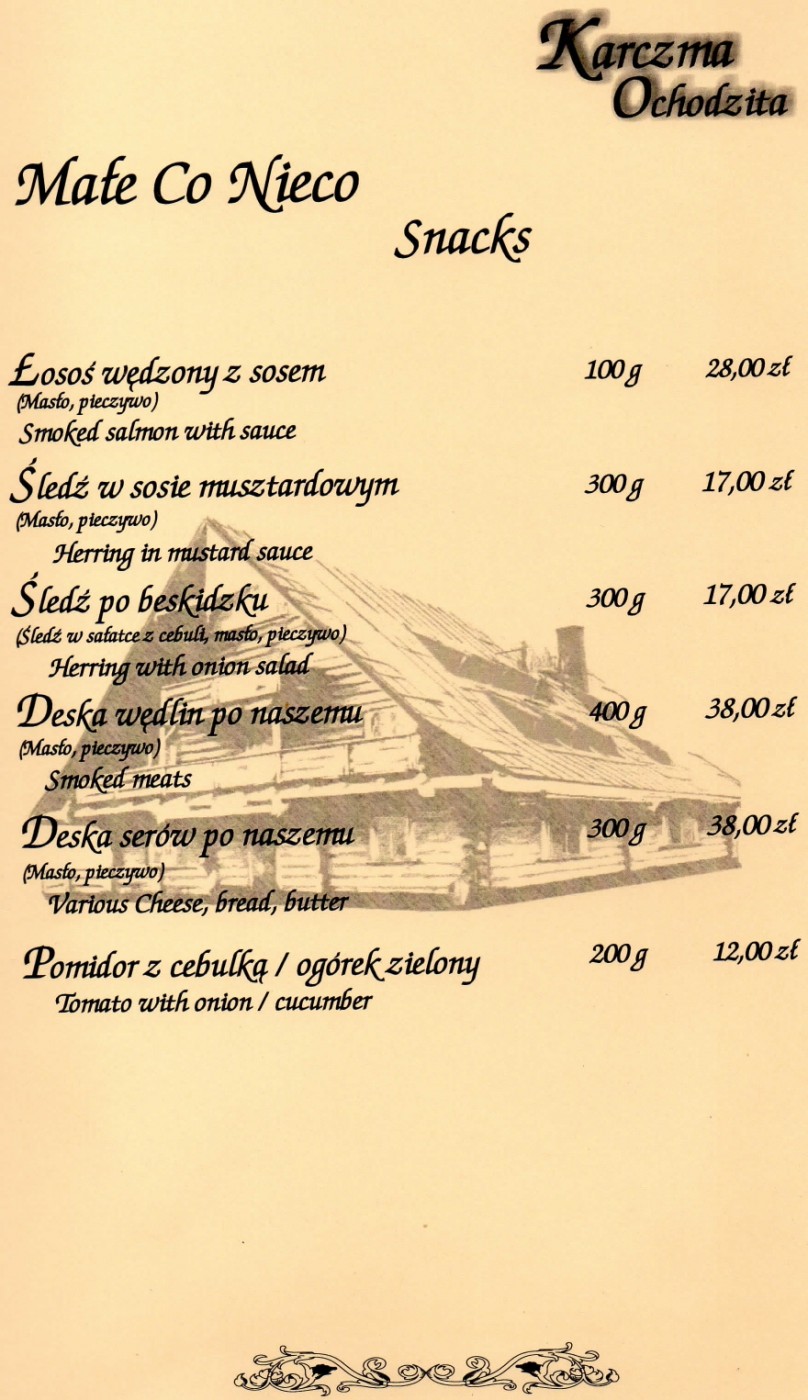 Karczma
Ochodzita
Małe Co Nieco
Snacks
Łosoś wędzony z sosem 100 g 28,00 zł
(Masło, pieczywo)
Smoked salmon with sauce
Śledź w sosie musztardowym 300 g 17,00 zł
(Masło, pieczywo)
Herring in mustard sauce
Śledź po beskidzku 300 g 17,00 zł
(Śledź w sałatce z cebuli, masło, pieczywo)
Herring with onion salad
Deska wędlin po naszemu 400 g 38,00 zł
(Masło, pieczywo)
Smoked meats
Deska serów po naszemu 300 g 38,00 zł
(Masło, pieczywo)
Various Cheese, bread, butter
Pomidor z cebulką / ogórek zielony 200 g 12,00 zł
Tomato with onion / cucumber